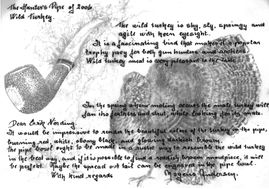 The Hunters Pipe of 2006
Wild Turkey.
The wild turkey is shy, sly, springy and
agile with keen eyesight.
It is a fascinating bird that makes it a popular
trophy prey for both gun hunters and archers.
Wild turkey meat is very pleasant to the taste.
In the spring when mating occurs the male turkey will
fan his feathers and strut, while looking for its mate.
Dear Erik Nørding.
It would be impressive to render the beautiful colors of the turkey on the pipe,
burning red, white, ebony black, and glowing darkish brown.
The pipe bowl ought to be made in a rustic way to resemble the wild turkey
in the best way, and if it is possible to find a reddish brown mouthpiece, it will
be perfekt. Maybe the spread out tail can be engraved in the pipe bowl.
With kind regards
Mogens Andersen.